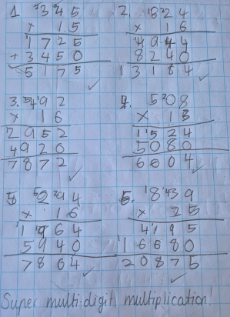 1. 345 2. 824
x 15 x 16
1725 4944
+3450 8240
5175 13184
3. 492 4. 508
x 16 x 13
2952 1524
4920 5080
7872 6604
5. 6.
x 16 x 25
1964 4195
5940 16680
7864 20875
Super multi-digit multiplication!